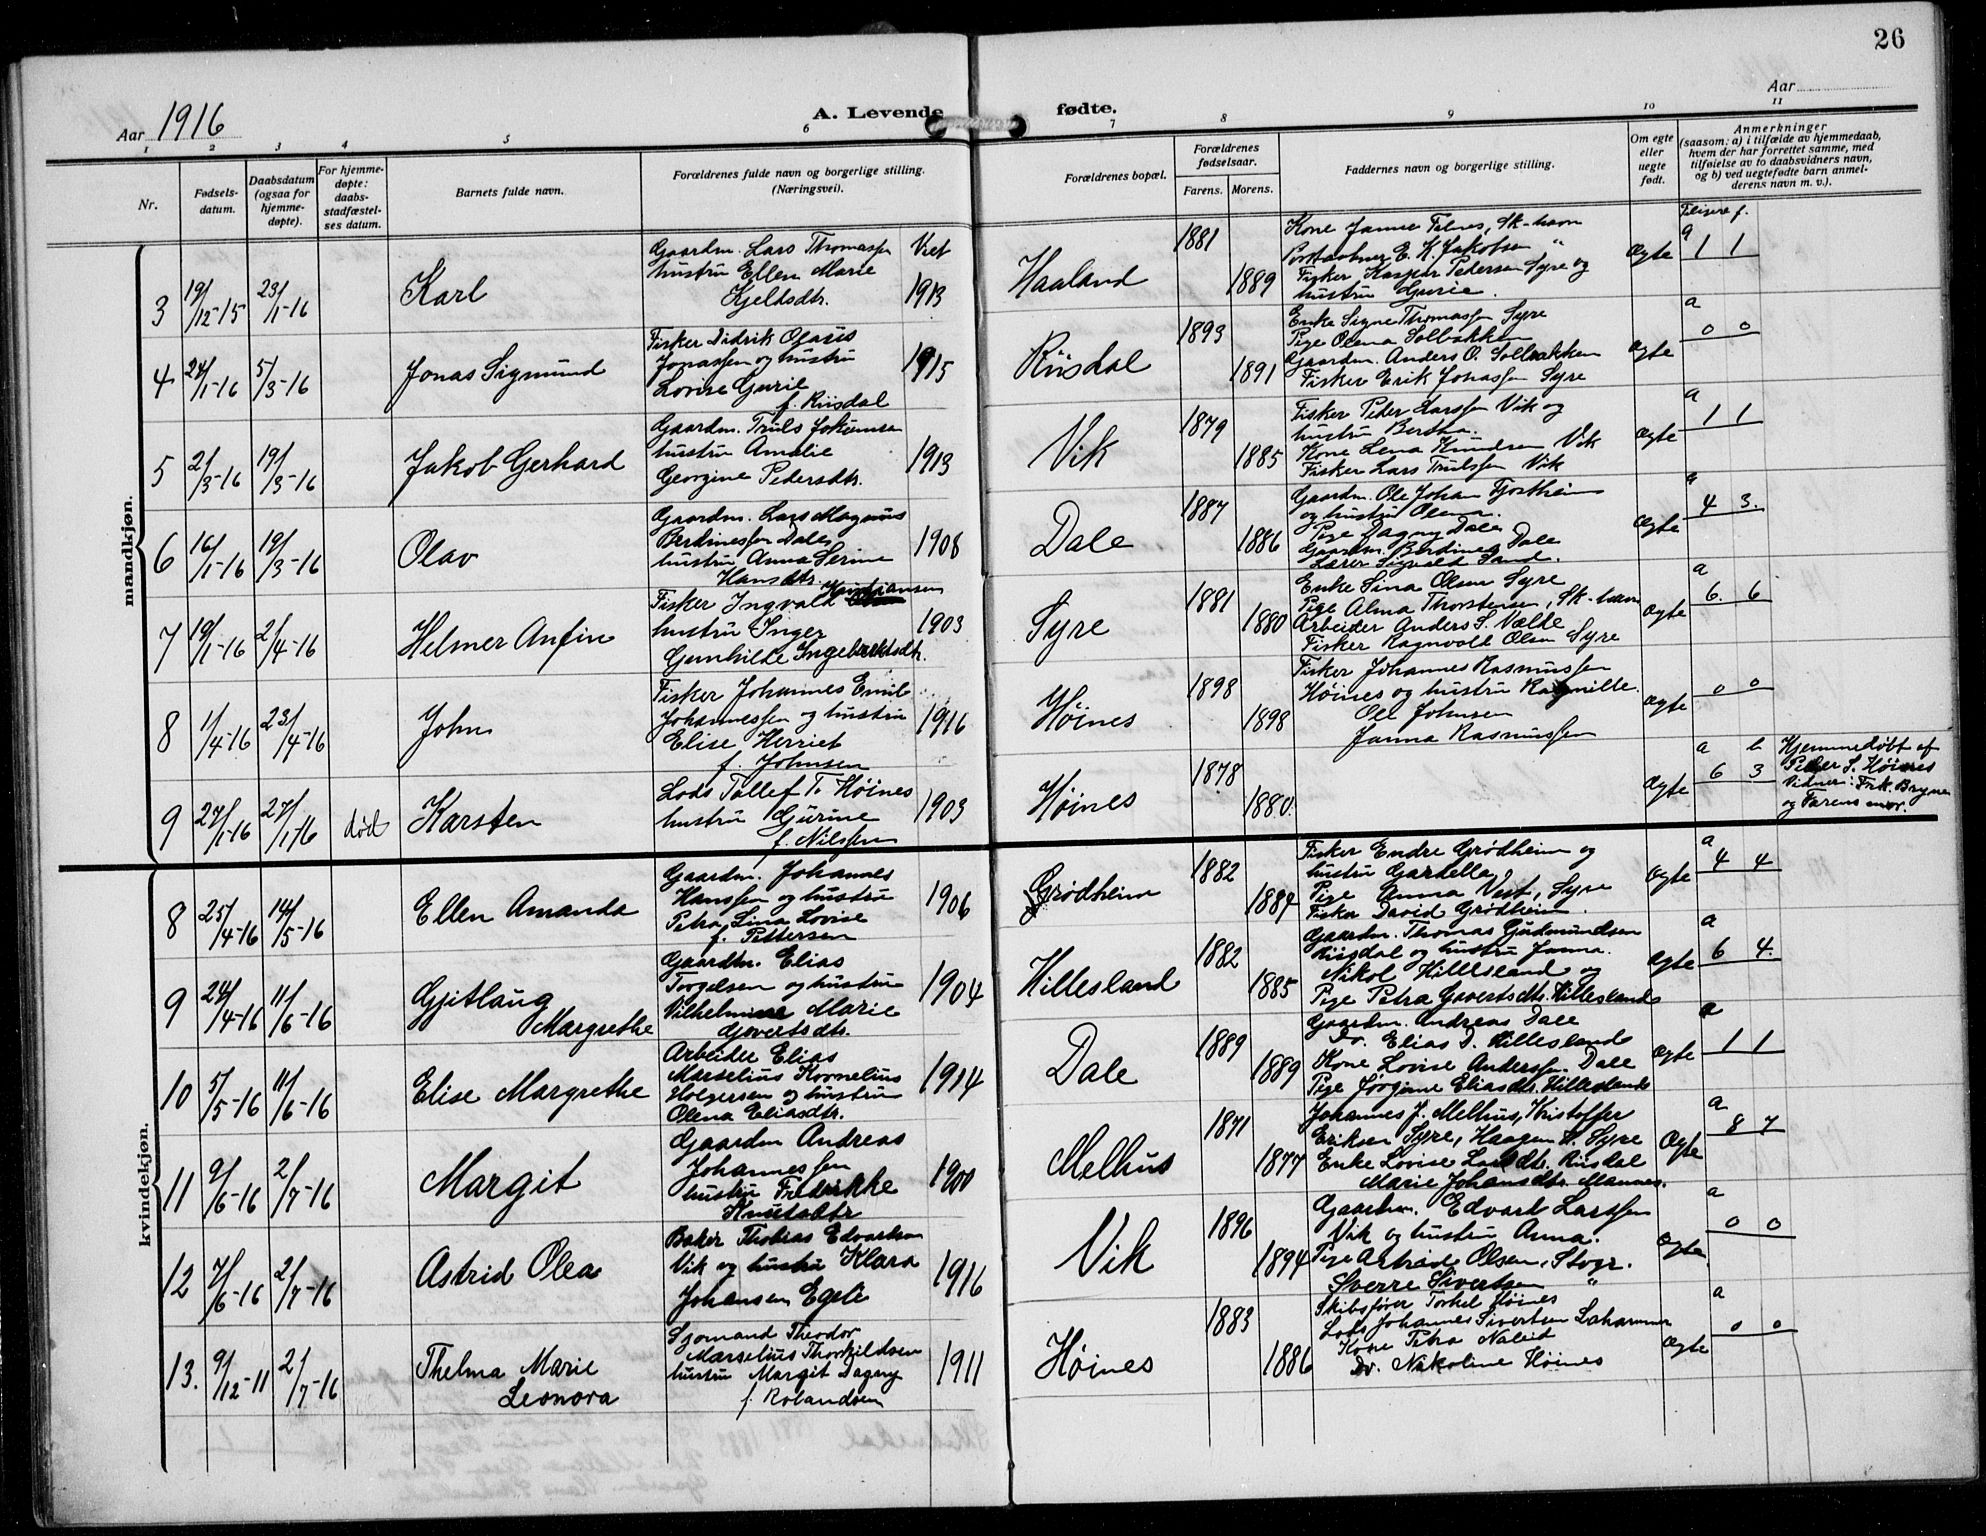 26
Aar 1916
A. Levende fødte.
Aar
1 2 3 4 5 6 7 8 9 10 11
Nr.
Fødsels-
datum.
Daabsdatum
(ogsaa for
hjemme-
døpte).
For hjemme-
døpte:
daabs-
stadfæstel-
ses datum.
Barnets fulde navn.
Forældrenes fulde navn og borgerlige stilling.
(Næringsvei).
Forældrenes bopæl.
Forældrenes
fødselsaar.
Farens. Morens.
Faddernes navn og borgerlige stilling.
Om egte
eller
uegte
født.
Anmerkninger
(saasom: a) i tilfælde av hjemmedaab,
hvem der har forrettet samme, med
tilføielse av to daabsvidners navn,
og b) ved uegtefødte barn anmel-
derens navn m. v.).
mandkjøn.
3 19/12-15 23/1-16 Karl
Gaardm. Lars Thomassen Viet
hustru Ellen Marie
Kjeldsdtr. 1913
Haaland 1881 1889
Kone Janne Felnes, Sk-havn
E. K. Jakobsen "
Fisker Kaspar Pedersen Syre og
hustru Gurie.
Ægte
a
1 1
4 24/1-16 5/3-16 Jonas Sigmund
Fisker Didrik Olaus
Jonassen og hustru 1915
Lovise Gurie
f. Riisdal
Riisdal 1893 1891
Enke Signe Thomassen Syre
Pige Olena Solbakken
Gaardm. Anders O. Solbakken
Fisker Erik Jonassen Syre
Ægte
a
0 0
5 2/3-16 19/3-16 Jakob Gerhard
Gaardm. Truls Jokumsen
hustru Amalie 1913
Georgine Pedersdtr.
Vik 1879 1885
Fisker Peder Larssen Vik og
hustru Bertha.
Kone Lena Knudsen Vik
Fisker Lars Trulssen Vik
Ægte
a
1 1
6 16/1-16 19/3-16 Olav
Gaardm. Lars Magnus
Berdinessen Dale 1908
hustru Anna Serine
Hansdtr.
Dale 1887 1886
Gaardm. Ole Johan Tjostheim
og hustru Olena.
Pige Dagny Dale
Gaardm. Berdines Dale
Lærer Sigvald Sande.
Ægte
a
4 3.
7 19/1-16 2/4-16 Helmer Anfin
Fisker Ingvald Kristiansen
hustru Inger 1903
Gunhilde Ingebrektsdtr.
Syre 1881 1880
Enke Sina Olsen Syre
Pige Alma Thorstensen, Sk-havn
Arbeider Anders S. Valle
Fisker Ragnvald Olsen Syre
Ægte
a
6. 6
8 1/4-16 23/4-16 John
Fisker Johannes Emil
Johannessen og hustru 1916
Elise Herriet
f. Johnsen
Høines 1898 1898
Fisker Johannes Rasmussen
Høines og hustru Ragnilde.
Ole Johnsen
Janna Rasmussen
Ægte
0 0
9 27/1-16 27/1-16 død Karsten
Lods Tollef T. Høines
hustru Gurine 1903
f. Nilssen
Høines 1878 1880.
Ægte
a b
6 3
Hjemmedøbt af
Peder S. Høines
Vidner: Frk. Bryne
og Farens mor.
kvindekjøn.
8 25/4-16 14/5-16 Ellen Amanda
Gaardm. Johannes
Hanssen og hustru 1906
Petra Lina Lovise
f. Pettersen
Grødheim 1882 1884
Fisker Endre Grødheim og
hustru Gardella
Pige Anna Vest, Syre
Fisker David Grødheim.
Ægte
a
4 4
9 24/4-16 11/6-16 Gjitlaug
Margrethe
Gaardm. Elias
Torgelsen og hustru 1904
Vilhelmine Marie
Govertsdtr.
Hillesland 1882 1885
Gaardm. Thomas Gudmundsen
Riisdal og hustru Janna.
Nikol. Hillesland og
Pige Petra Govertsdtr. Hillesland
Ægte
a
6 4.
10 5/5-16 11/6-16 Elise Margrethe
Arbeider Elias
Marselius Kornelius 1914
Holgersen og hustru
Olena Eliasdtr.
Dale 1889 1889
Gaardm. Andreas Dale
Do. Elias D. Hillesland
Kone Lovise Anderssen Dale
Pige Jørgine Eliasdtr. Hillesland
Ægte
a
1 1
11 9/6-16 2/7-16 Margit
Gaardm Andreas
Johannessen 1900
hustru Fredrikke
Knutsdtr
Melhus 1871 1877
Johannes J. Melhus, Kristoffer
Eriksen Syre, Haagen S. Syre
Enke Lovise Larsdtr. Riisdal
Marie Johansdtr. Mannes.
Ægte
a
8 7
12 7/6-16 2/7-16 Astrid Olea
Baker Thobias Edvardsen
Vik og hustru Klara 1916
Johansen Egeli
Vik 1896 1894
Gaardm. Edvart Larssen
Vik og hustru Anna.
Pige Astrid Olsen, Stvgr.
Sverre Sivertsen "
Ægte
a
0 0
13. 9/12-11 2/7-16 Thelma Marie
Leonora
Sjømand Theodor
Marselius Thorkildsen
hustru Margit Dagny 1911
f. Rolandsen
Høines 1883 1886
Skibsfører Torkel Høines
Lods Johannes Sivertsen Lahammer
Kone Petra Naleid
Do. Nikoline Høines
Ægte
a
0 0